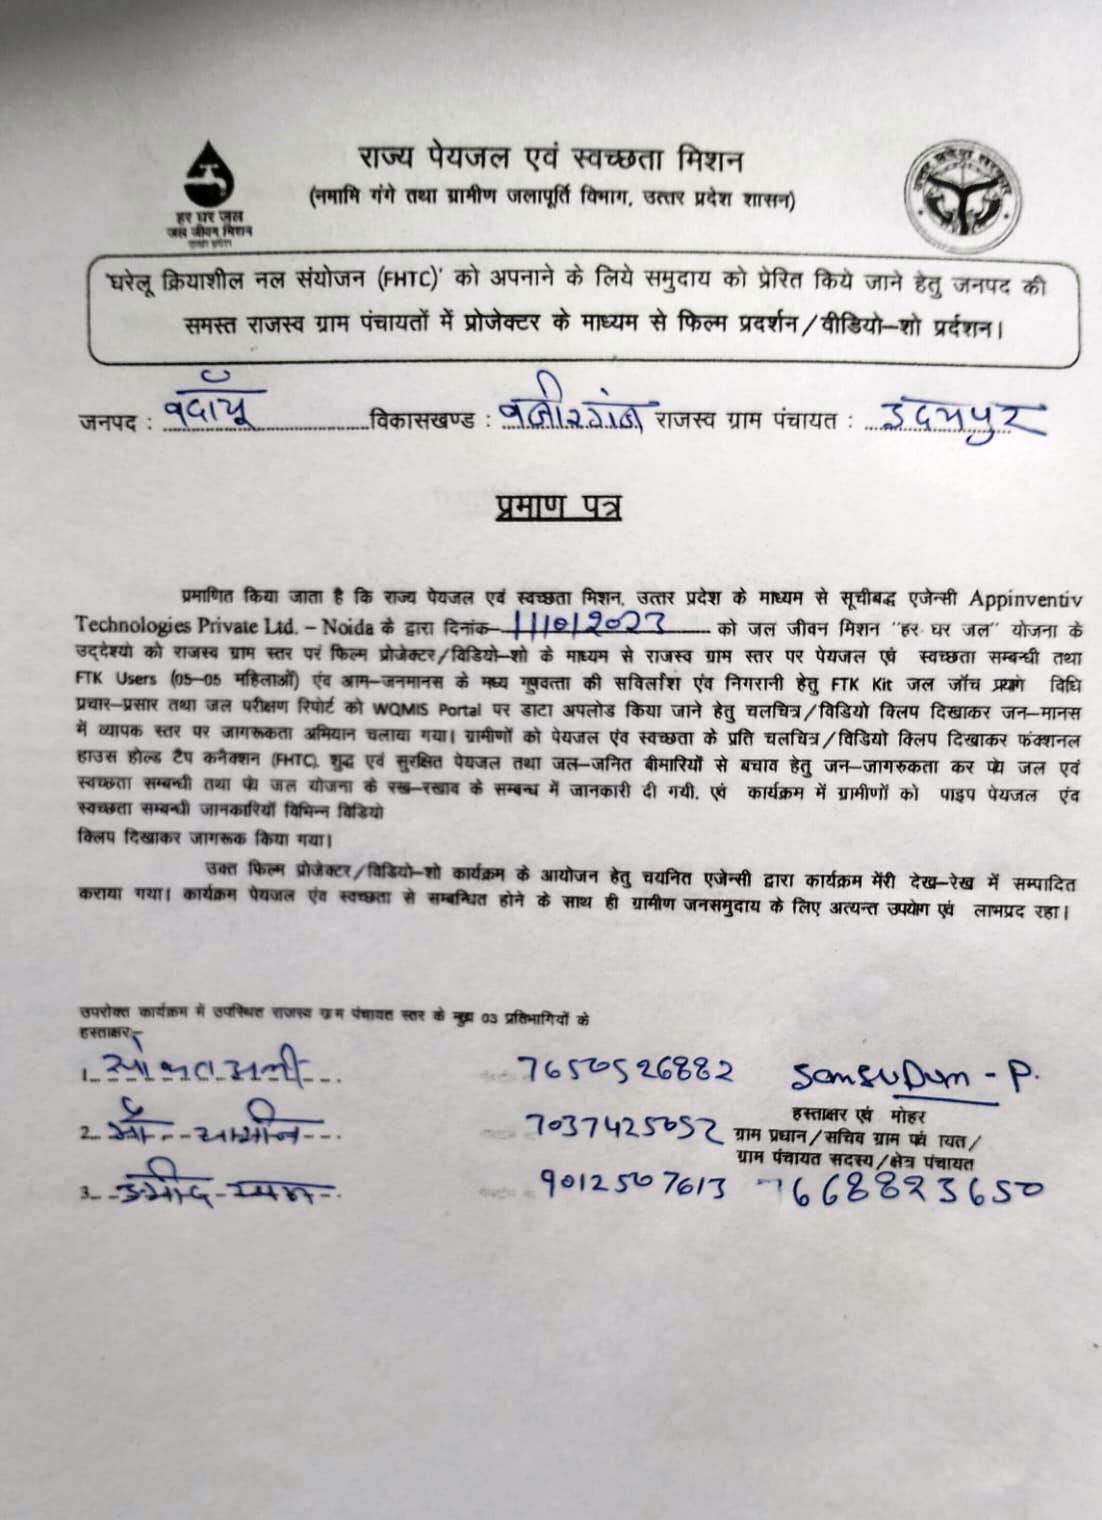 राज्य पेयजल एवं स्वच्छता मिशन
(नमामि गंगे तथा ग्रामीण जलापूर्ति विभाग, उत्तर प्रदेश शासन)
हर घर जल
जल जीवन मिशन
उत्तर प्रदेश सरकार
'घरेलू क्रियाशील नल संयोजन (FHTC)' को अपनाने के लिये समुदाय को प्रेरित किये जाने हेतु जनपद की
समस्त राजस्व ग्राम पंचायतों में प्रोजेक्टर के माध्यम से फिल्म प्रदर्शन/वीडियो-शो प्रर्दशन।
जनपद : बदायूँ विकासखण्ड : वजीरगंज राजस्व ग्राम पंचायत : इदयपुर
प्रमाण पत्र
प्रमाणित किया जाता है कि राज्य पेयजल एवं स्वच्छता मिशन, उत्तर प्रदेश के माध्यम से सूचीबद्ध एजेन्सी Appinventiv
Technologies Private Ltd. – Noida के द्वारा दिनांक- 11/10/2023 को जल जीवन मिशन "हर घर जल" योजना के
उद्देश्यो को राजस्व ग्राम स्तर पर फिल्म प्रोजेक्टर/विडियो-शो के माध्यम से राजस्व ग्राम स्तर पर पेयजल एवं स्वच्छता सम्बन्धी तथा
FTK Users (05-05 महिलाओं) एंव आम-जनमानस के मध्य गुणवत्ता की सर्विलांश एंव निगरानी हेतु FTK Kit जल जॉच प्रयोग विधि
प्रचार-प्रसार तथा जल परीक्षण रिपोर्ट को WQMIS Portal पर डाटा अपलोड किया जाने हेतु चलचित्र/विडियो क्लिप दिखाकर जन-मानस
में व्यापक स्तर पर जागरूकता अभियान चलाया गया। ग्रामीणों को पेयजल एंव स्वच्छता के प्रति चलचित्र/विडियो क्लिप दिखाकर फंक्शनल
हाउस होल्ड टैप कनैक्शन (FHTC), शुद्ध एवं सुरक्षित पेयजल तथा जल-जनित बीमारियों से बचाव हेतु जन-जागरुकता कर पेय जल एवं
स्वच्छता सम्बन्धी तथा पेय जल योजना के रख-रखाव के सम्बन्ध में जानकारी दी गयी, एवं कार्यक्रम में ग्रामीणों को पाइप पेयजल एंव
स्वच्छता सम्बन्धी जानकारियॉ विभिन्न विडियो
क्लिप दिखाकर जागरूक किया गया।
उक्त फिल्म प्रोजेक्टर/विडियो-शो कार्यक्रम के आयोजन हेतु चयनित एजेन्सी द्वारा कार्यक्रम मेंरी देख-रेख में सम्पादित
कराया गया। कार्यक्रम पेयजल एंव स्वच्छता से सम्बन्धित होने के साथ ही ग्रामीण जनसमुदाय के लिए अत्यन्त उपयोग एवं लाभप्रद रहा।
उपरोक्त कार्यक्रम में उपस्थित राजस्व ग्राम पंचायत स्तर के मुख्य 03 प्रतिभागियों के
हस्ताक्षर-
1. अली 7650526882
2. मौ. यामीन 7037425052
3. 9012507613
Samsuddin - P.
हस्ताक्षर एवं मोहर
ग्राम प्रधान/सचिव ग्राम पंचायत/
ग्राम पंचायत सदस्य/क्षेत्र पंचायत
7668823650